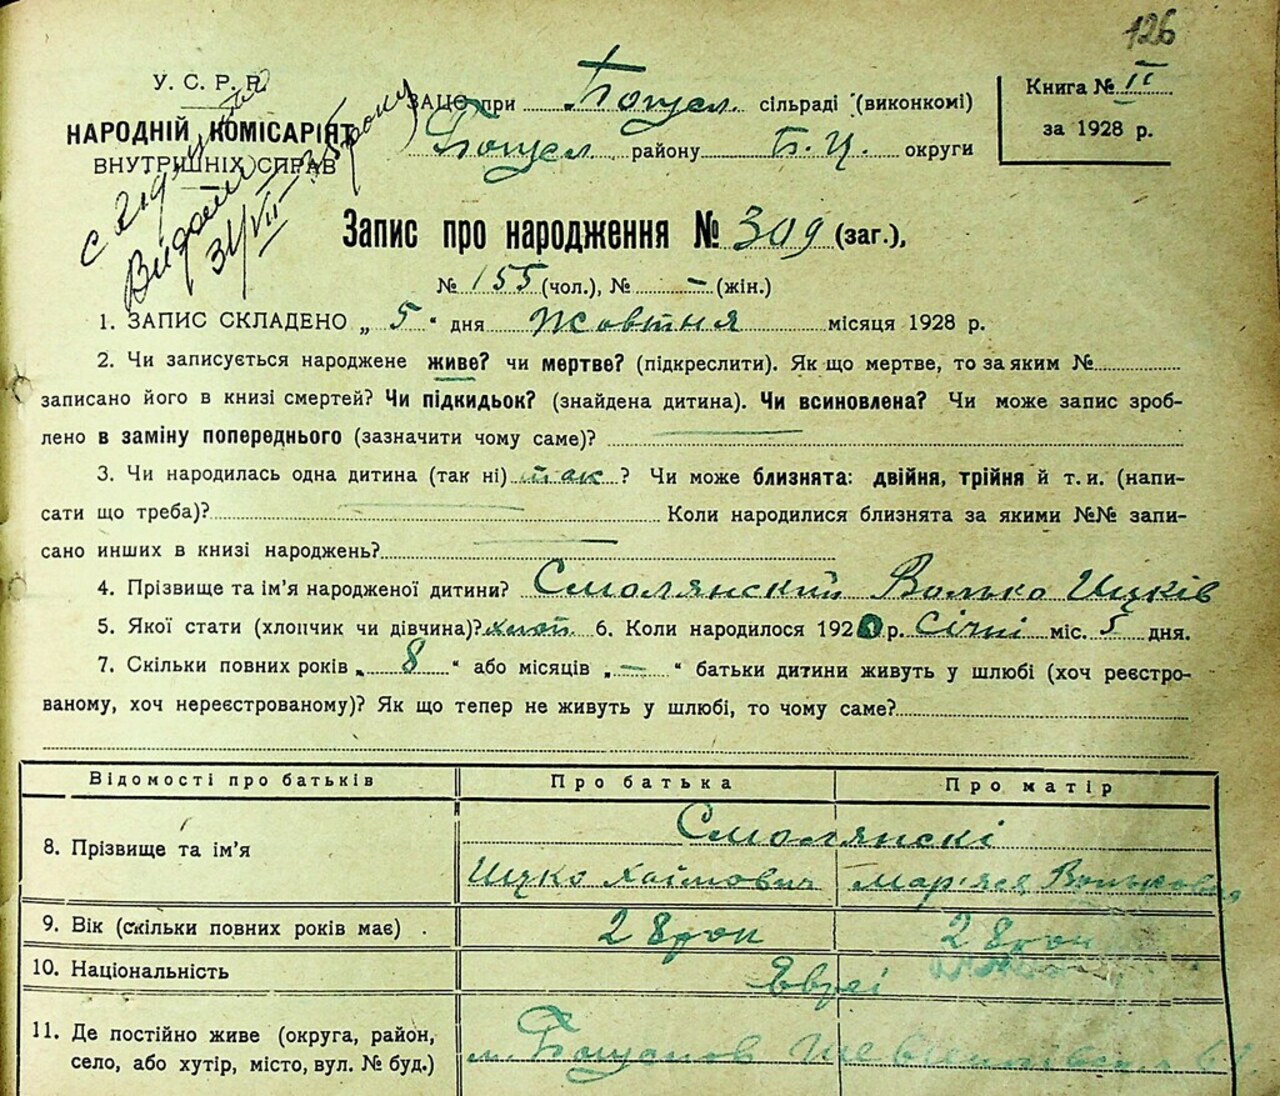 126
У. С. Р. Р.
НАРОДНІЙ КОМІСАРІЯТ
ВНУТРІШНІХ СПРАВ
ЗАЦС при Богусл. сільраді (виконкомі)
Богусл. району Б. Ц. округи
Книга № II
за 1928 р.
31/VII-35 року
Запис про народження № 309 (заг.),
№ 155 (чол.), № — (жін.)
1. ЗАПИС СКЛАДЕНО „ 5 “ дня Жовтня місяця 1928 р.
2. Чи записується народжене живе? чи мертве? (підкреслити). Як що мертве, то за яким №
записано його в книзі смертей? Чи підкидьок? (знайдена дитина). Чи всиновлена? Чи може запис зроб-
лено в заміну попереднього (зазначити чому саме)?
3. Чи народилась одна дитина (так ні) так ? Чи може близнята: двійня, трійня й т. и. (напи-
сати що треба)? Коли народилися близнята за якими №№ запи-
сано инших в книзі народжень?
4. Прізвище та ім'я народженої дитини? Смолянский Волько Ицків
5. Якої стати (хлопчик чи дівчина)? хлоп. 6. Коли народилося 192 р. Січні міс. 5 дня.
7. Скільки повних років „ 8 “ або місяців „ — “ батьки дитини живуть у шлюбі (хоч реєстро-
ваному, хоч нереєстрованому)? Як що тепер не живуть у шлюбі, то чому саме?
Відомості про батьків Про батька Про матір
8. Прізвище та ім'я Смолянскі
Ицко Хаїмович Мар'яся Вольковна
9. Вік (скільки повних років має) 28 рок 28 рок
10. Національність Евреї
11. Де постійно живе (округа, район,
село, або хутір, місто, вул. № буд.) м. Богуслав